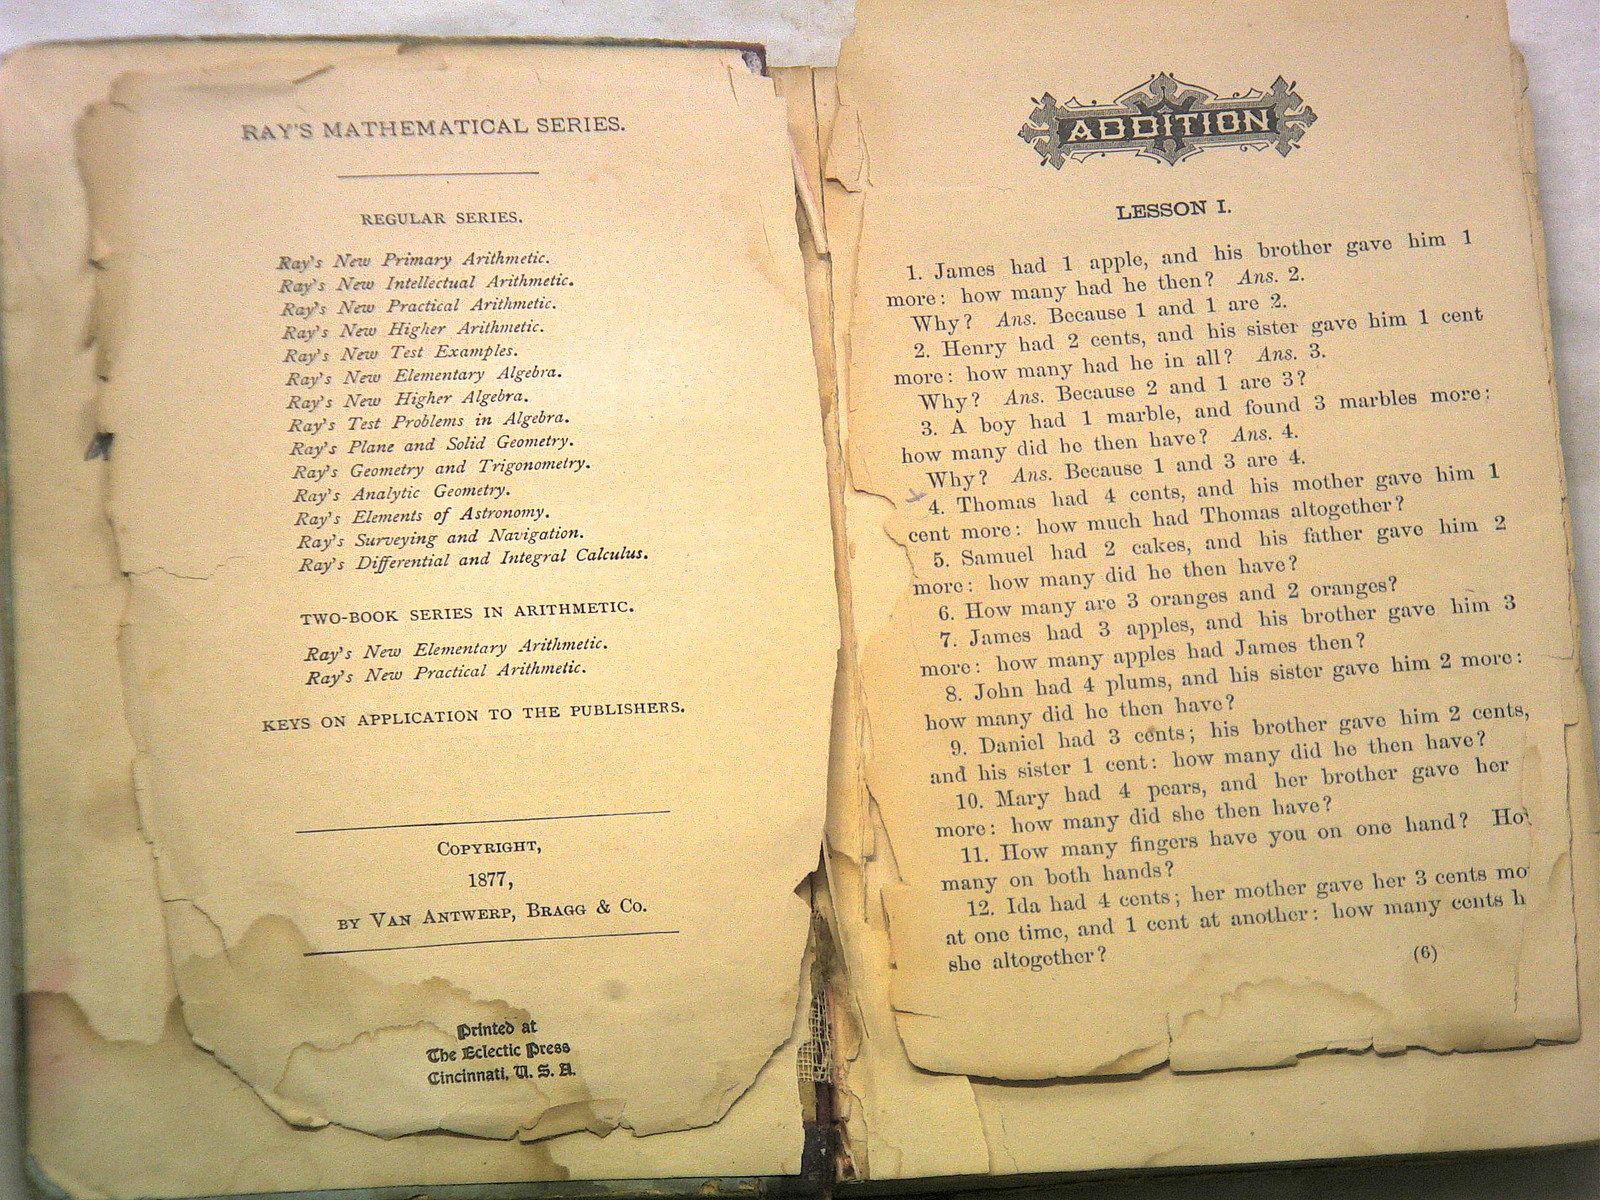 RAY'S MATHEMATICAL SERIES.
REGULAR SERIES.
Ray's New Primary Arithmetic.
Ray's New Intellectual Arithmetic.
Ray's New Practical Arithmetic.
Ray's New Higher Arithmetic.
Ray's New Test Examples.
Ray's New Elementary Algebra.
Ray's New Higher Algebra.
Ray's Test Problems in Algebra.
Ray's Plane and Solid Geometry.
Ray's Geometry and Trigonometry.
Ray's Analytic Geometry.
Ray's Elements of Astronomy.
Ray's Surveying and Navigation.
Ray's Differential and Integral Calculus.
TWO-BOOK SERIES IN ARITHMETIC.
Ray's New Elementary Arithmetic.
Ray's New Practical Arithmetic.
KEYS ON APPLICATION TO THE PUBLISHERS.
COPYRIGHT,
1877,
BY VAN ANTWERP, BRAGG & CO.
Printed at
The Eclectic Press
Cincinnati, U. S. A.
ADDITION
LESSON I.
1. James had 1 apple, and his brother gave him 1
more: how many had he then? Ans. 2.
Why? Ans. Because 1 and 1 are 2.
2. Henry had 2 cents, and his sister gave him 1 cent
more: how many had he in all? Ans. 3.
Why? Ans. Because 2 and 1 are 3?
3. A boy had 1 marble, and found 3 marbles more:
how many did he then have? Ans. 4.
Why? Ans. Because 1 and 3 are 4.
4. Thomas had 4 cents, and his mother gave him 1
cent more: how much had Thomas altogether?
5. Samuel had 2 cakes, and his father gave him 2
more: how many did he then have?
6. How many are 3 oranges and 2 oranges?
7. James had 3 apples, and his brother gave him 3
more: how many apples had James then?
8. John had 4 plums, and his sister gave him 2 more:
how many did he then have?
9. Daniel had 3 cents; his brother gave him 2 cents,
and his sister 1 cent: how many did he then have?
10. Mary had 4 pears, and her brother gave her
more: how many did she then have?
11. How many fingers have you on one hand? Ho
many on both hands?
12. Ida had 4 cents; her mother gave her 3 cents mo
at one time, and 1 cent at another: how many cents h
she altogether?
(6)